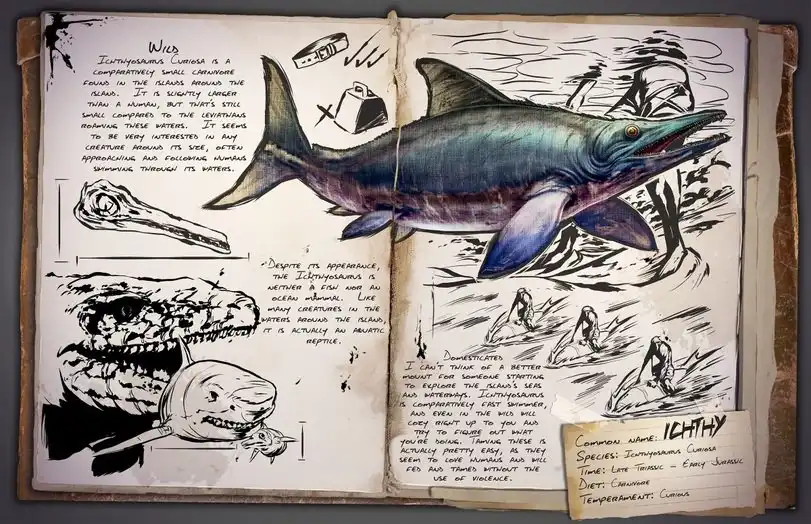 Wild
Ichthyosaurus Curiosa is a
comparatively small carnivore
found in the islands around the
island. It is slightly larger
than a human, but that's still
small compared to the leviathans
roaming these waters. It seems
to be very interested in any
creature around its size, often
approaching and following humans
swimming through its waters.
Despite its appearance,
the Ichthyosaurus is
neither a fish nor an
ocean mammal. Like
many creatures in the
waters around the island,
it is actually an aquatic
reptile.
Domesticated
I can't think of a better
mount for someone starting
to explore the island's seas
and waterways. Ichthyosaurus
is comparatively fast swimmer,
and even in the wild will
cozy right up to you and
try to figure out what
you're doing. Taming these is
actually pretty easy, as they
seem to love humans and will
fed and tamed without the
use of violence.
Common name: Ichthy
Species: Ichthyosaurus Curiosa
Time: Late Triassic - Early Jurassic
Diet: Carnivore
Temperament: Curious